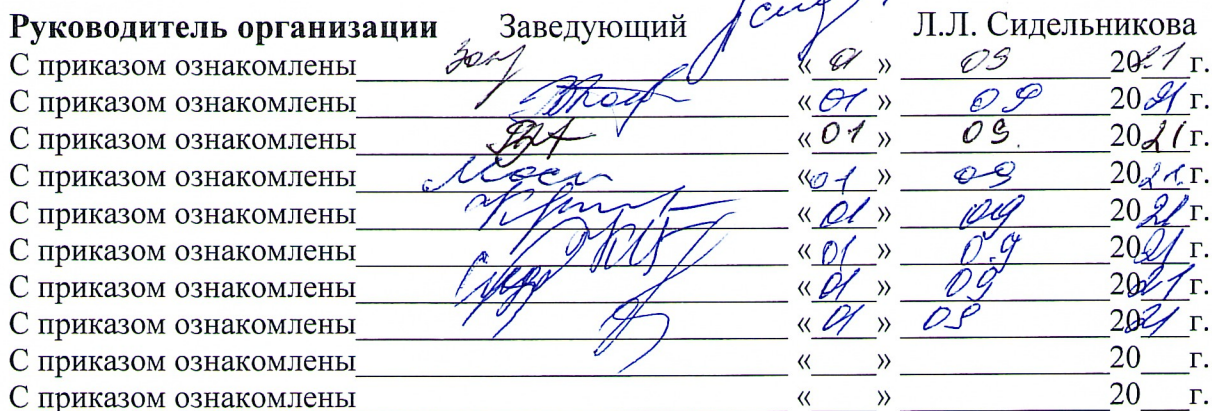 Руководитель организации Заведующий Л.Л. Сидельникова
С приказом ознакомлены « 01 » 09 2021 г.
С приказом ознакомлены « 01 » 09 2021 г.
С приказом ознакомлены « 01 » 09. 2021 г.
С приказом ознакомлены « 01 » 09 2021 г.
С приказом ознакомлены « 01 » 09 2021 г.
С приказом ознакомлены « 01 » 09 2021 г.
С приказом ознакомлены « 01 » 09 2021 г.
С приказом ознакомлены « 01 » 09 2021 г.
С приказом ознакомлены « » 20 г.
С приказом ознакомлены « » 20 г.